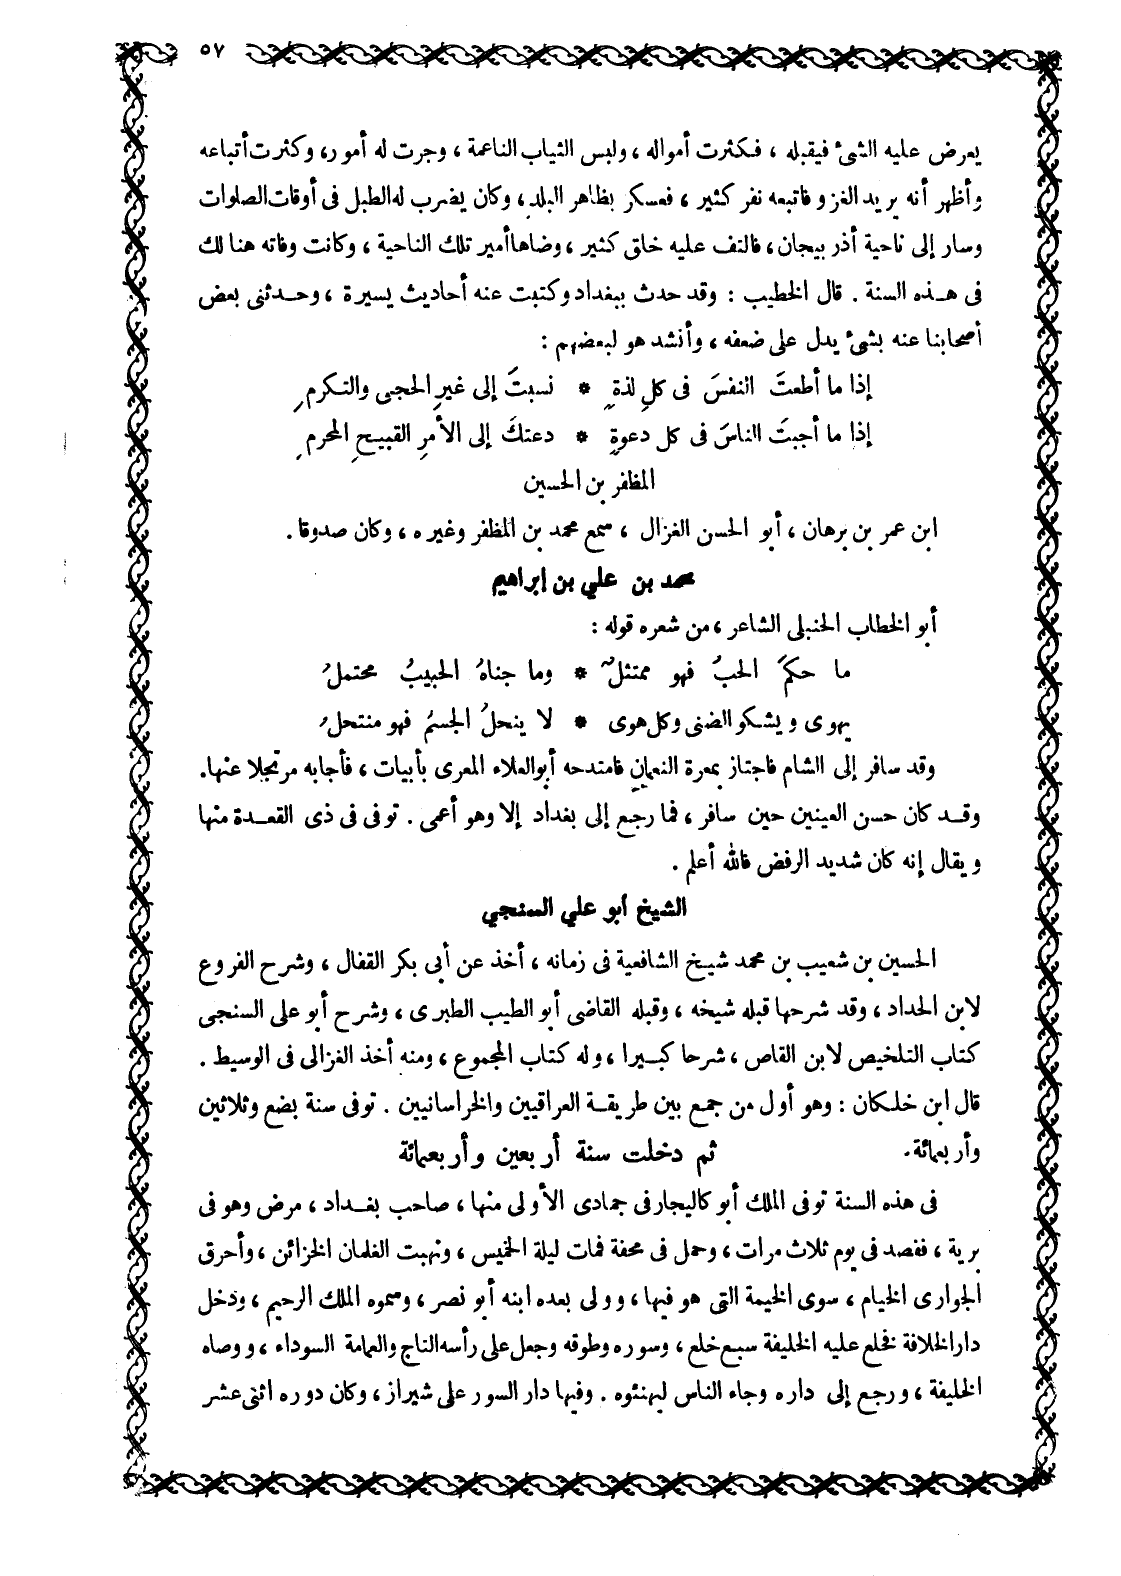 ٥٧
يعرض عليه الشئ فيقبله ، فكثرت أمواله ، ولبس الثياب الناعمة ، وجرت له أمور، وكثرت أتباعه
وأظهر أنه يريد الغزو فاتبعه نفر كثير ، فعسكر بظاهر البلد، وكان يضرب له الطبل فى أوقات الصلوات
وسار إلى ناحية أذر بيجان، فالتف عليه خلق كثير ، وضاها أمير تلك الناحية ، وكانت وفاته هنالك
فى هذه السنة . قال الخطيب : وقد حدث ببغداد وكتبت عنه أحاديث يسيرة ، وحدثنى بعض
أصحابنا عنه بشئ يدل على ضعفه ، وأنشد هو لبعضهم :
إذا ما أطعتَ النفسَ فى كلِ لذةٍ * نسبتَ إلى غيرِ الحجى والتكرمِ
إذا ما أجبتَ الناسَ فى كل دعوةٍ * دعتكَ إلى الأمرِ القبيحِ المحرمِ
المظفر بن الحسين
ابن عمر بن برهان ، أبو الحسن الغزال ، سمع محمد بن المظفر وغيره ، وكان صدوقا .
محمد بن علي بن إبراهيم
أبو الخطاب الحنبلى الشاعر ، من شعره قوله :
ما حكمَ الحبُ فهو ممتثلٌ * وما جناهُ الحبيبُ محتملُ
يهوى ويشكو الضنى وكل هوى * لا ينحلُ الجسمُ فهو منتحلُ
وقد سافر إلى الشام فاجتاز بمعرة النعمانِ فامتدحه أبو العلاء المعرى بأبيات ، فأجابه مرتجلا عنها.
وقد كان حسن العينين حين سافر ، فما رجع إلى بغداد إلا وهو أعمى . توفى فى ذى القعدة منها
ويقال إنه كان شديد الرفض فالله أعلم .
الشيخ أبو علي السنجي
الحسين بن شعيب بن محمد شيخ الشافعية فى زمانه ، أخذ عن أبى بكر القفال ، وشرح الفروع
لابن الحداد ، وقد شرحها قبله شيخه ، وقبله القاضى أبو الطيب الطبرى ، وشرح أبو على السنجى
كتاب التلخيص لابن القاص ، شرحا كبيرا ، وله كتاب المجموع ، ومنه أخذ الغزالى فى الوسيط .
قال ابن خلكان : وهو أول من جمع بين طريقة العراقيين والخراسانيين . توفى سنة بضع وثلاثين
وأربعمائة.
ثم دخلت سنة أربعين وأربعمائة
فى هذه السنة توفى الملك أبو كاليجار فى جمادى الأولى منها ، صاحب بغداد ، مرض وهو فى
برية ، ففصد فى يوم ثلاث مرات ، وحمل فى محفة فمات ليلة الخميس ، ونهبت الغلمان الخزائن ، وأحرق
الجوارى الخيام ، سوى الخيمة التى هو فيها ، وولى بعده ابنه أبو نصر ، وسموه الملك الرحيم ، ودخل
دار الخلافة فخلع عليه الخليفة سبع خلع ، وسوره وطوقه وجعل على رأسه التاج والعمامة السوداء ، ووصاه
الخليفة ، ورجع إلى داره وجاء الناس ليهنئوه . وفيها دار السور على شيراز ، وكان دوره اثنى عشر